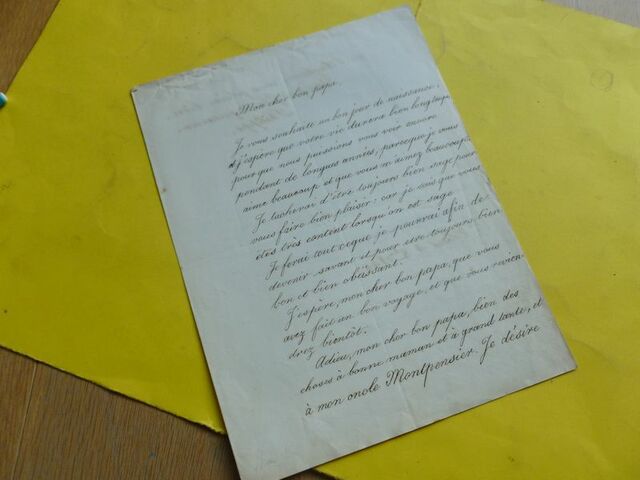 Mon cher bon papa,
Je vous souhaite un bon jour de naissance,
et j'espère que votre vie durera bien longtemps
pour que nous puissions vous voir encore
pendant de longues années, parceque je vous
aime beaucoup et que vous m'aimez beaucoup.
Je tacherai d'être toujours bien sage pour
vous faire bien plaisir: car je sais que vous
êtes très content lorsqu'on est sage
Je ferai tout ce que je pourrai afin de
devenir savant et pour etre toujours bien
bon et bien obéissant:
J'espère, mon cher bon papa, que vous
avez fait un bon voyage, et que vous revien-
drez bientôt.
Adieu, mon cher bon papa, bien des
choses à bonne maman et à grand tante, et
à mon oncle Montpensier. Je désire